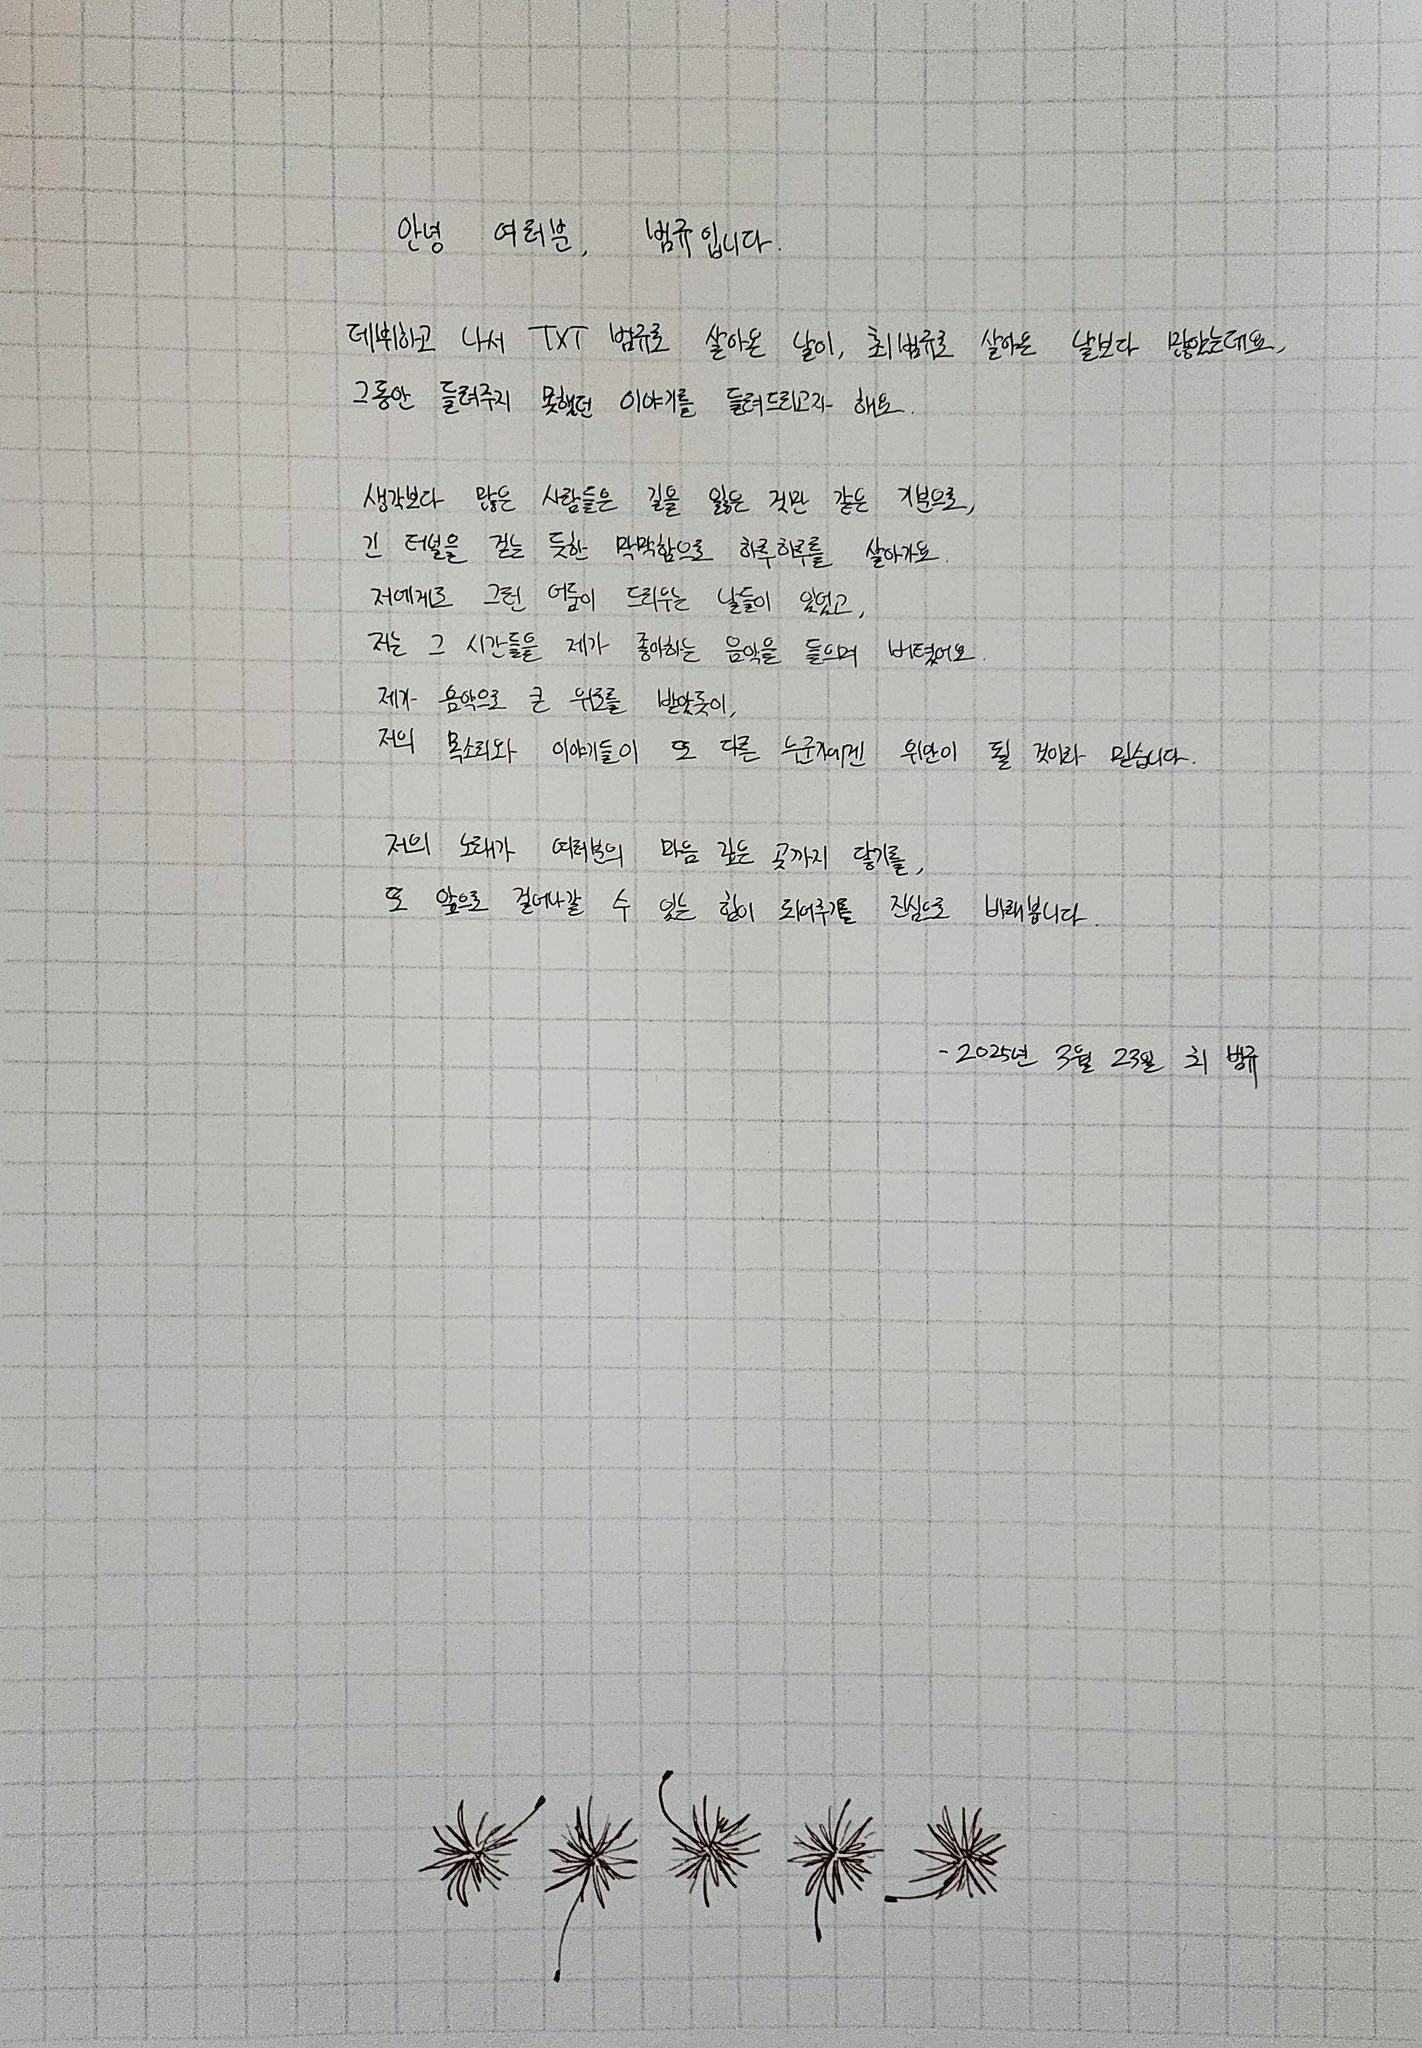 안녕 여러분, 범규입니다.
데뷔하고 나서 TXT 범규로 살아온 날이, 최범규로 살아온 날보다 많았는데요,
그동안 들려주지 못했던 이야기를 들려드리고자 해요.
생각보다 많은 사람들은 길을 잃은 것만 같은 기분으로,
긴 터널을 걷는 듯한 막막함으로 하루하루를 살아가요.
저에게도 그런 어둠이 드리우는 날들이 있었고,
저는 그 시간들을 제가 좋아하는 음악을 들으며 버텼어요.
제가 음악으로 큰 위로를 받았듯이,
저의 목소리와 이야기들이 또 다른 누군가에겐 위안이 될 것이라 믿습니다.
저의 노래가 여러분의 마음 깊은 곳까지 닿기를,
또 앞으로 걸어나갈 수 있는 힘이 되어주기를 진심으로 바래봅니다.
- 2025년 3월 23일 최 범규